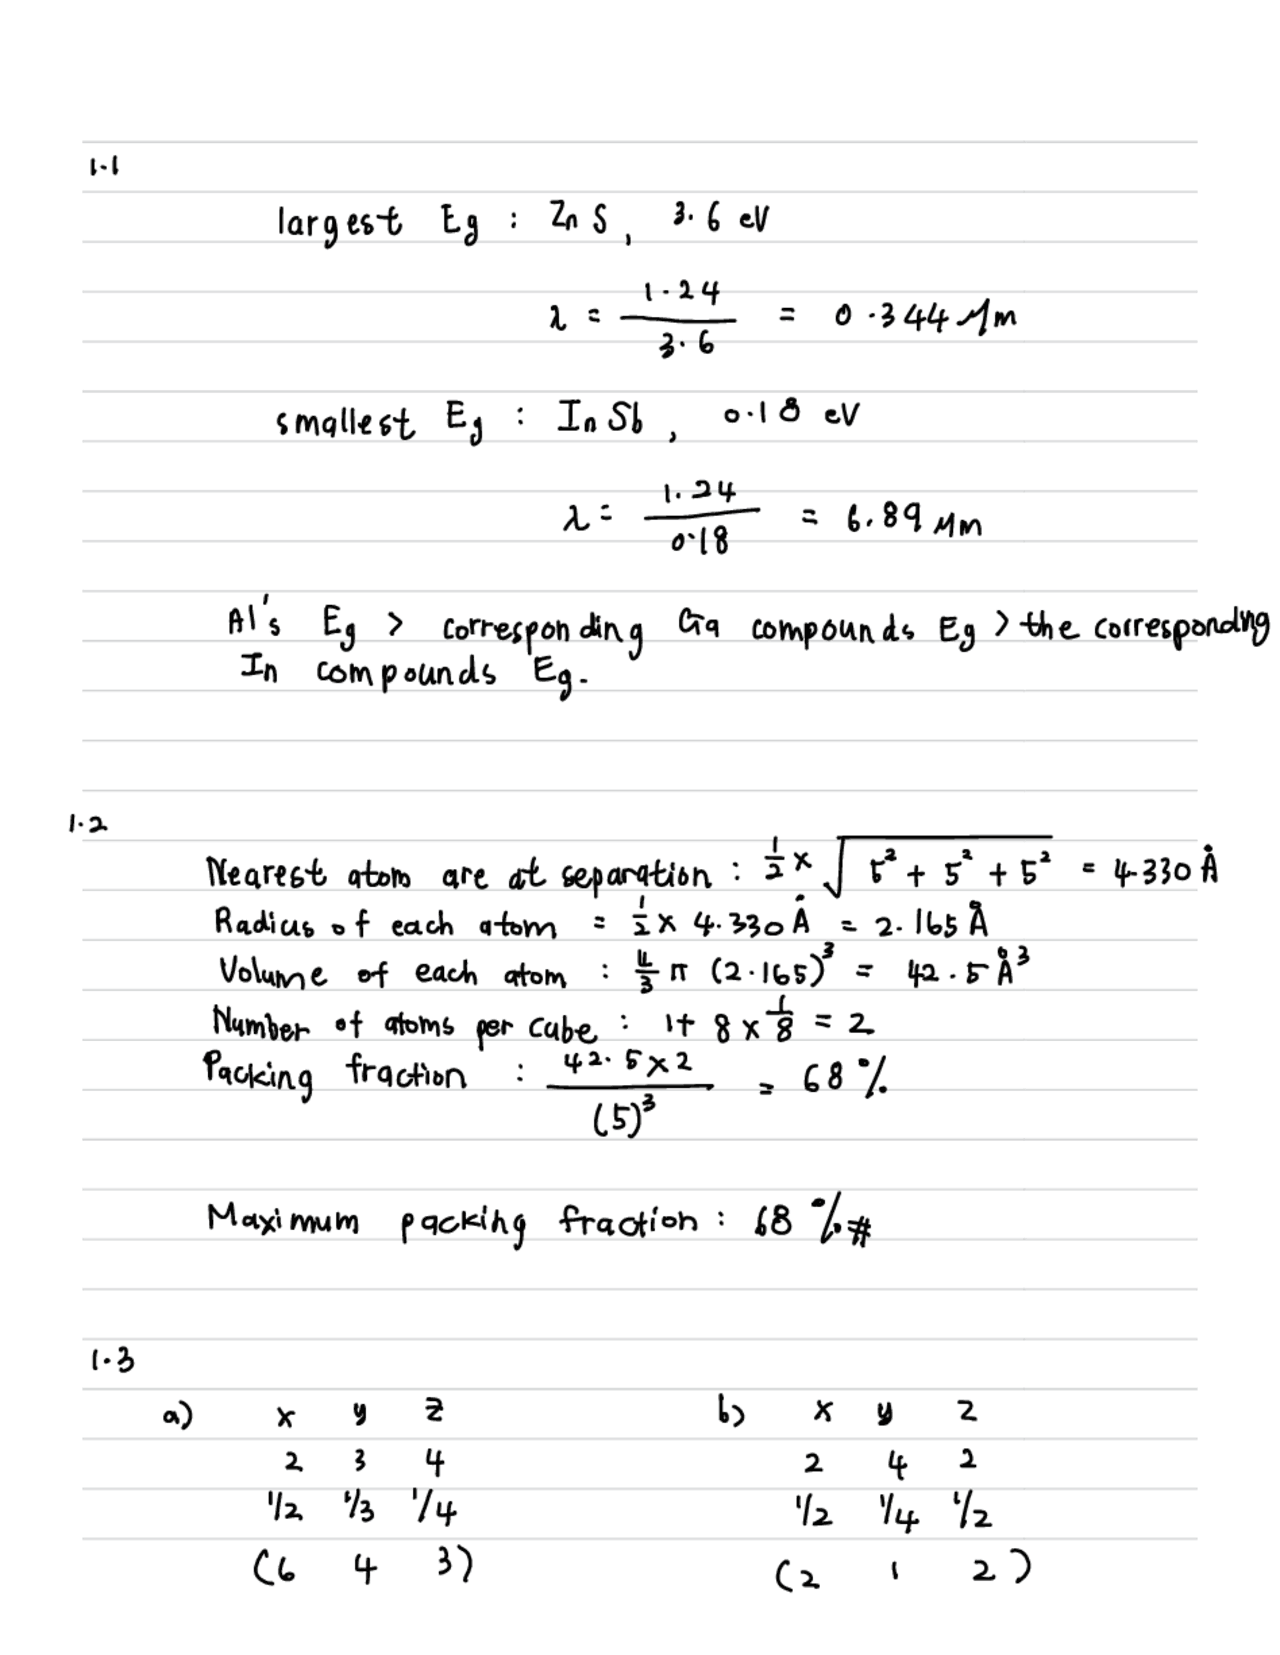 1.1
largest Eg : ZnS, 3.6 eV
λ = 1.24/3.6 = 0.344 μm
smallest Eg : InSb, 0.18 eV
λ = 1.24/0.18 = 6.89 μm
Al's Eg > corresponding Ga compounds Eg > the corresponding
In compounds Eg.
1.2
Nearest atom are at separation : 1/2 × √(5² + 5² + 5²) = 4.330 Å
Radius of each atom = 1/2 × 4.330 Å = 2.165 Å
Volume of each atom : 4/3 π (2.165)³ = 42.5 Å³
Number of atoms per cube : 1+ 8 × 1/8 = 2
Packing fraction : 42.5 × 2/(5)³ = 68 %
Maximum packing fraction : 68 % #
1.3
a) x y z b) x y z
2 3 4 2 4 2
1/2 1/3 1/4 1/2 1/4 1/2
(6 4 3) (2 1 2)